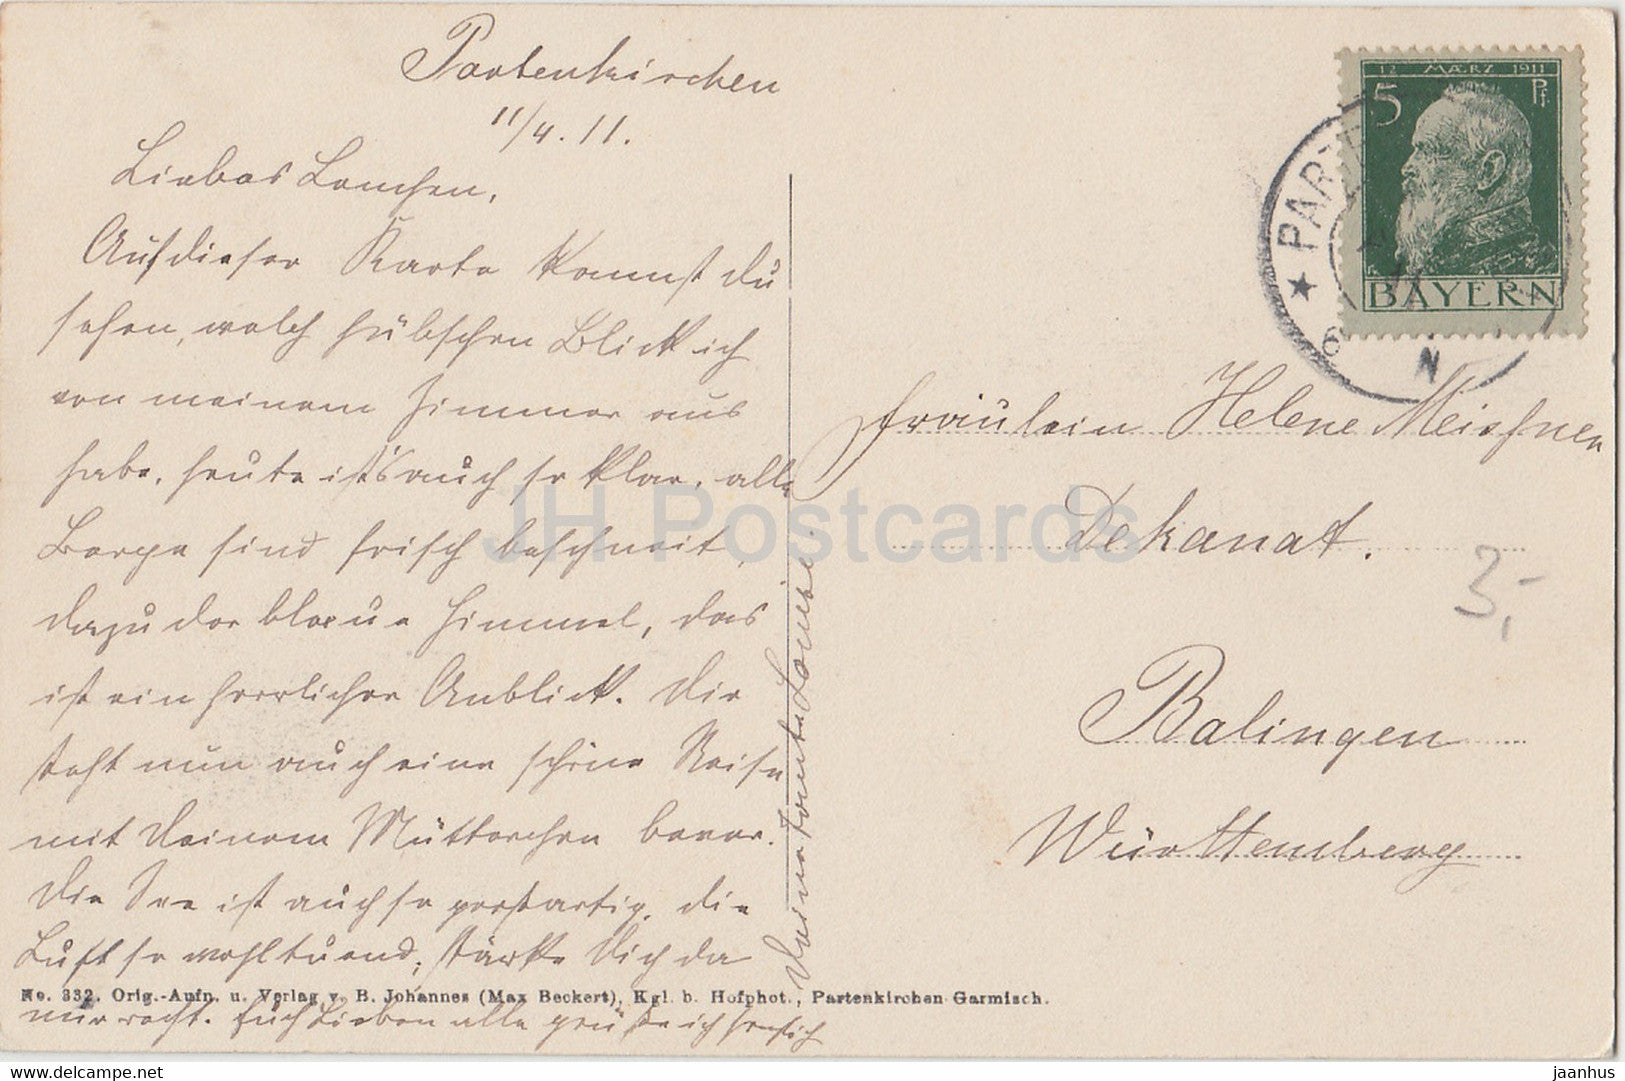 Partenkirchen
11/4. 11.
Liebes Lenchen,
Auf dieser Karte kannst du
sehen, welch hübschen Blick ich
von meinem Zimmer aus
habe, heute ist's auch so klar, alle
Berge sind frisch beschneit,
dazu der blaue Himmel, das
ist ein herrlicher Anblick. Dir
steht nun auch eine schöne Reise
mit Deinem Mütterchen bevor.
Die See ist auch so großartig, die
Luft so wohltuend; stärke Dich da
nur recht. Euch Lieben alle grüße ich herzlich
Deine Tante
No. 332. Orig.-Aufn. u. Verlag v. B. Johannes (Max Beckert), Kgl. b. Hofphot., Partenkirchen-Garmisch.
12 MÆRZ 1911
5 Pf.
BAYERN
★ PART
6
N
Fräulein Helene Meissner
Dekanat.
3,-
Balingen
Württemberg
JH Postcards
https://www.delcampe.net
jaanhus